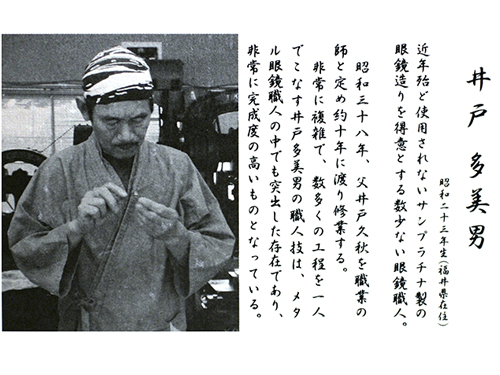 井戸多美男
昭和二十三年生(福井県在住)
近年殆ど使用されないサンプラチナ製の
眼鏡造りを得意とする数少ない眼鏡職人。
昭和三十八年、父井戸久秋を職業の
師と定め約十年に渡り修業する。
非常に複雑で、数多くの工程を一人
でこなす井戸多美男の職人技は、メタ
ル眼鏡職人の中でも突出した存在であり、
非常に完成度の高いものとなっている。